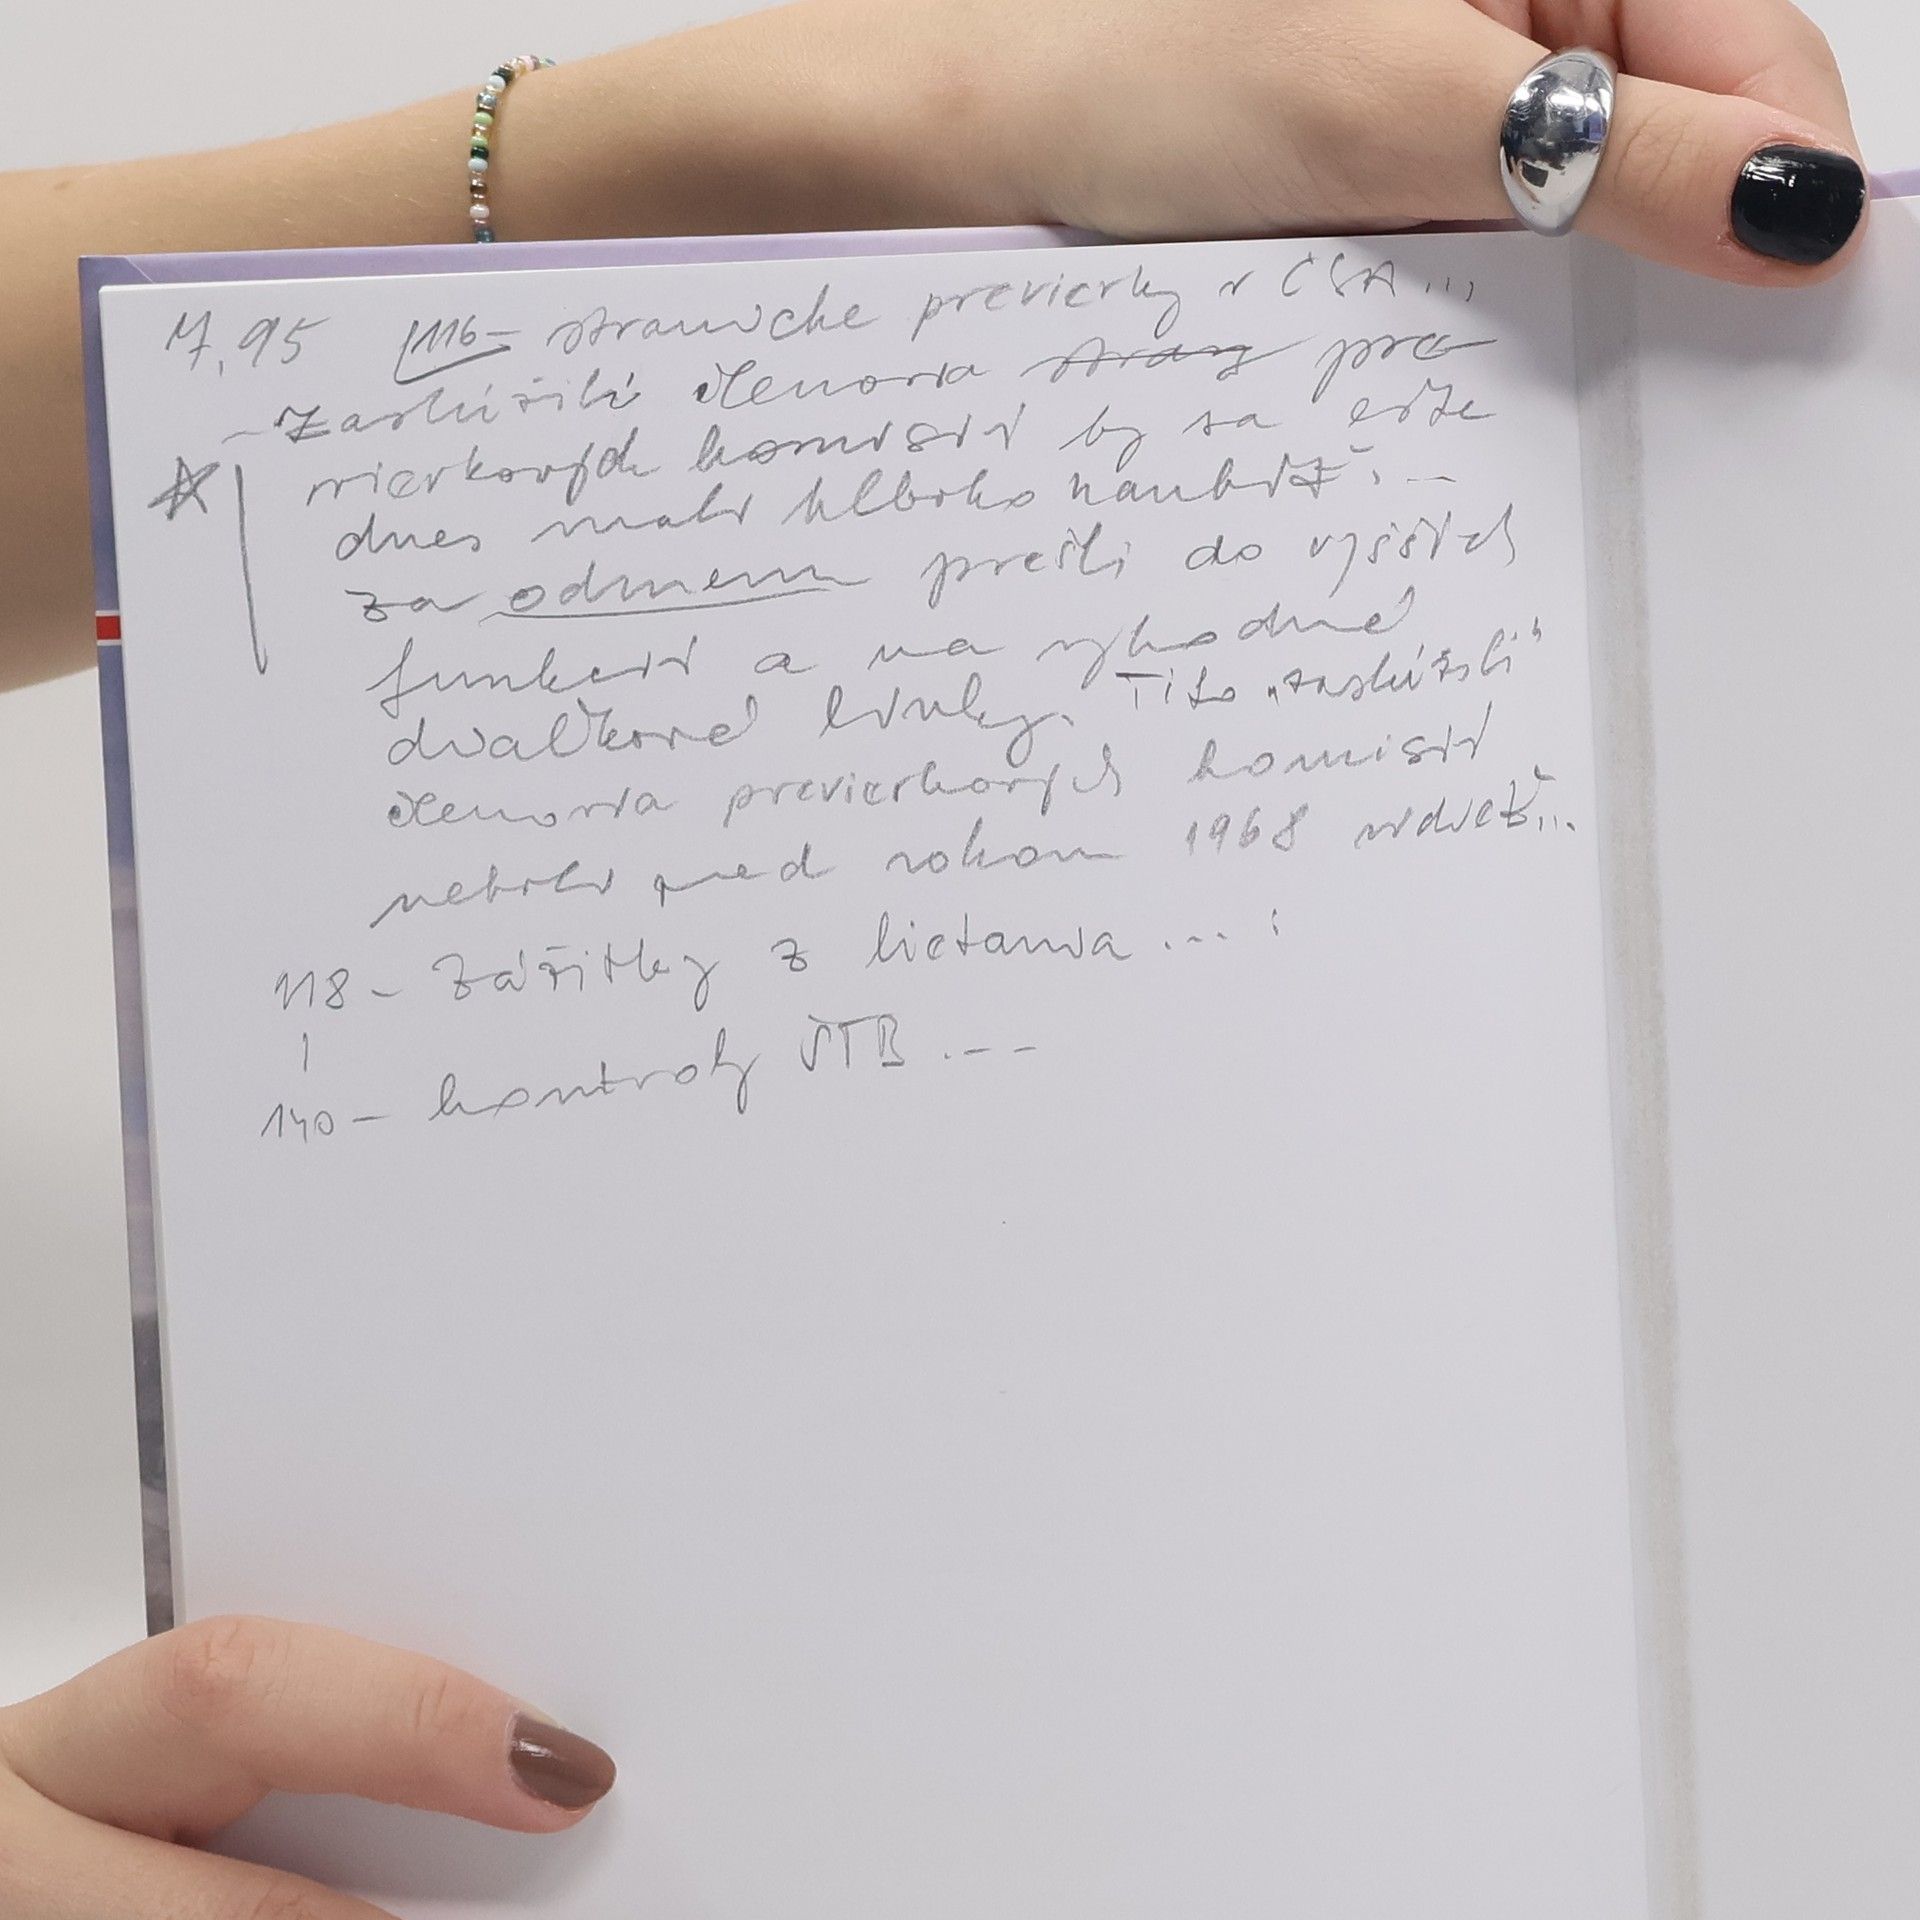 M, 95 116- stranícke previerky v ČSA...
- Zaslúžilí členovia strany pre
vierkových komisií by sa ešte
dnes mali hlboko hanbiť. --
za odmenu prešli do vyšších
funkcií a na výhodné
diaľkové linky. Títo „zaslúžilí“
členovia previerkových komisií
neboli pred rokom 1968 vidieť...
118 - Zážitky z lietania ... :
140 - kontroly ŠTB .---